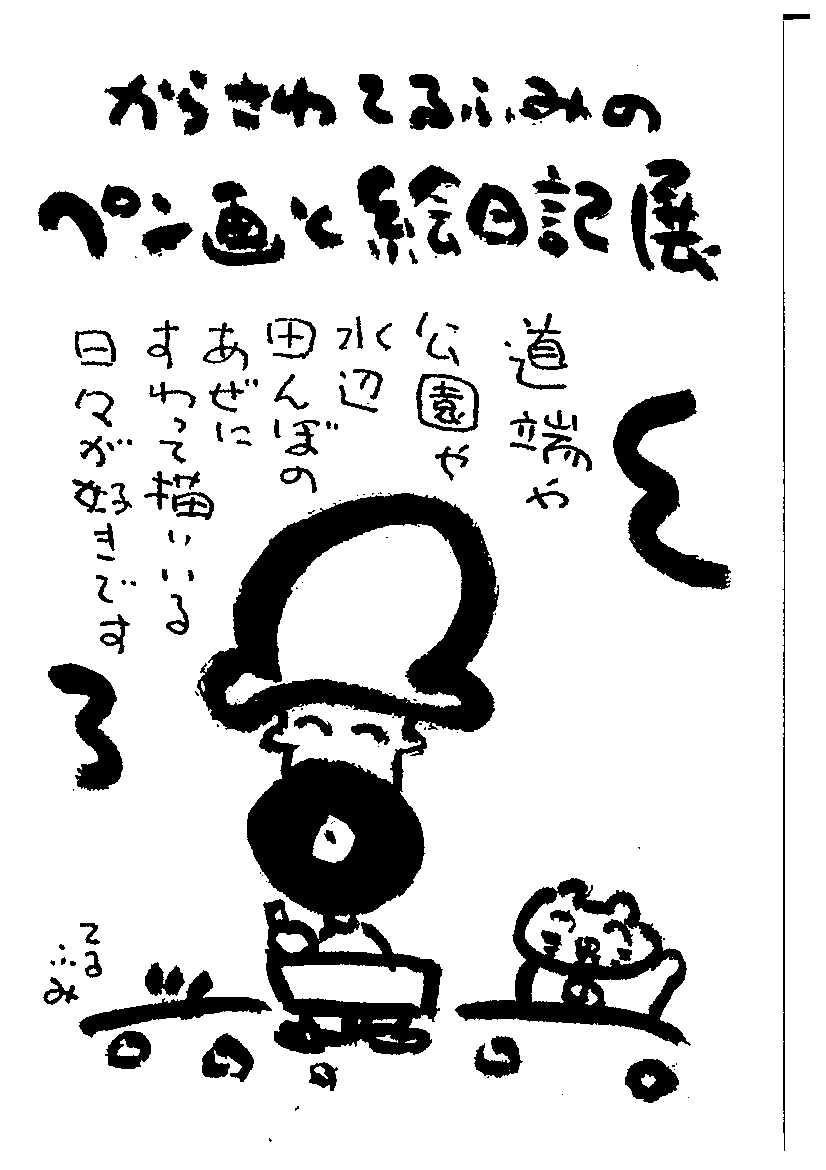 からさわてるふみの
ペン画と絵日記展
道端や
公園や
水辺
田んぼの
あぜに
すわって描いいる
日々が好きです
てる
ふみ